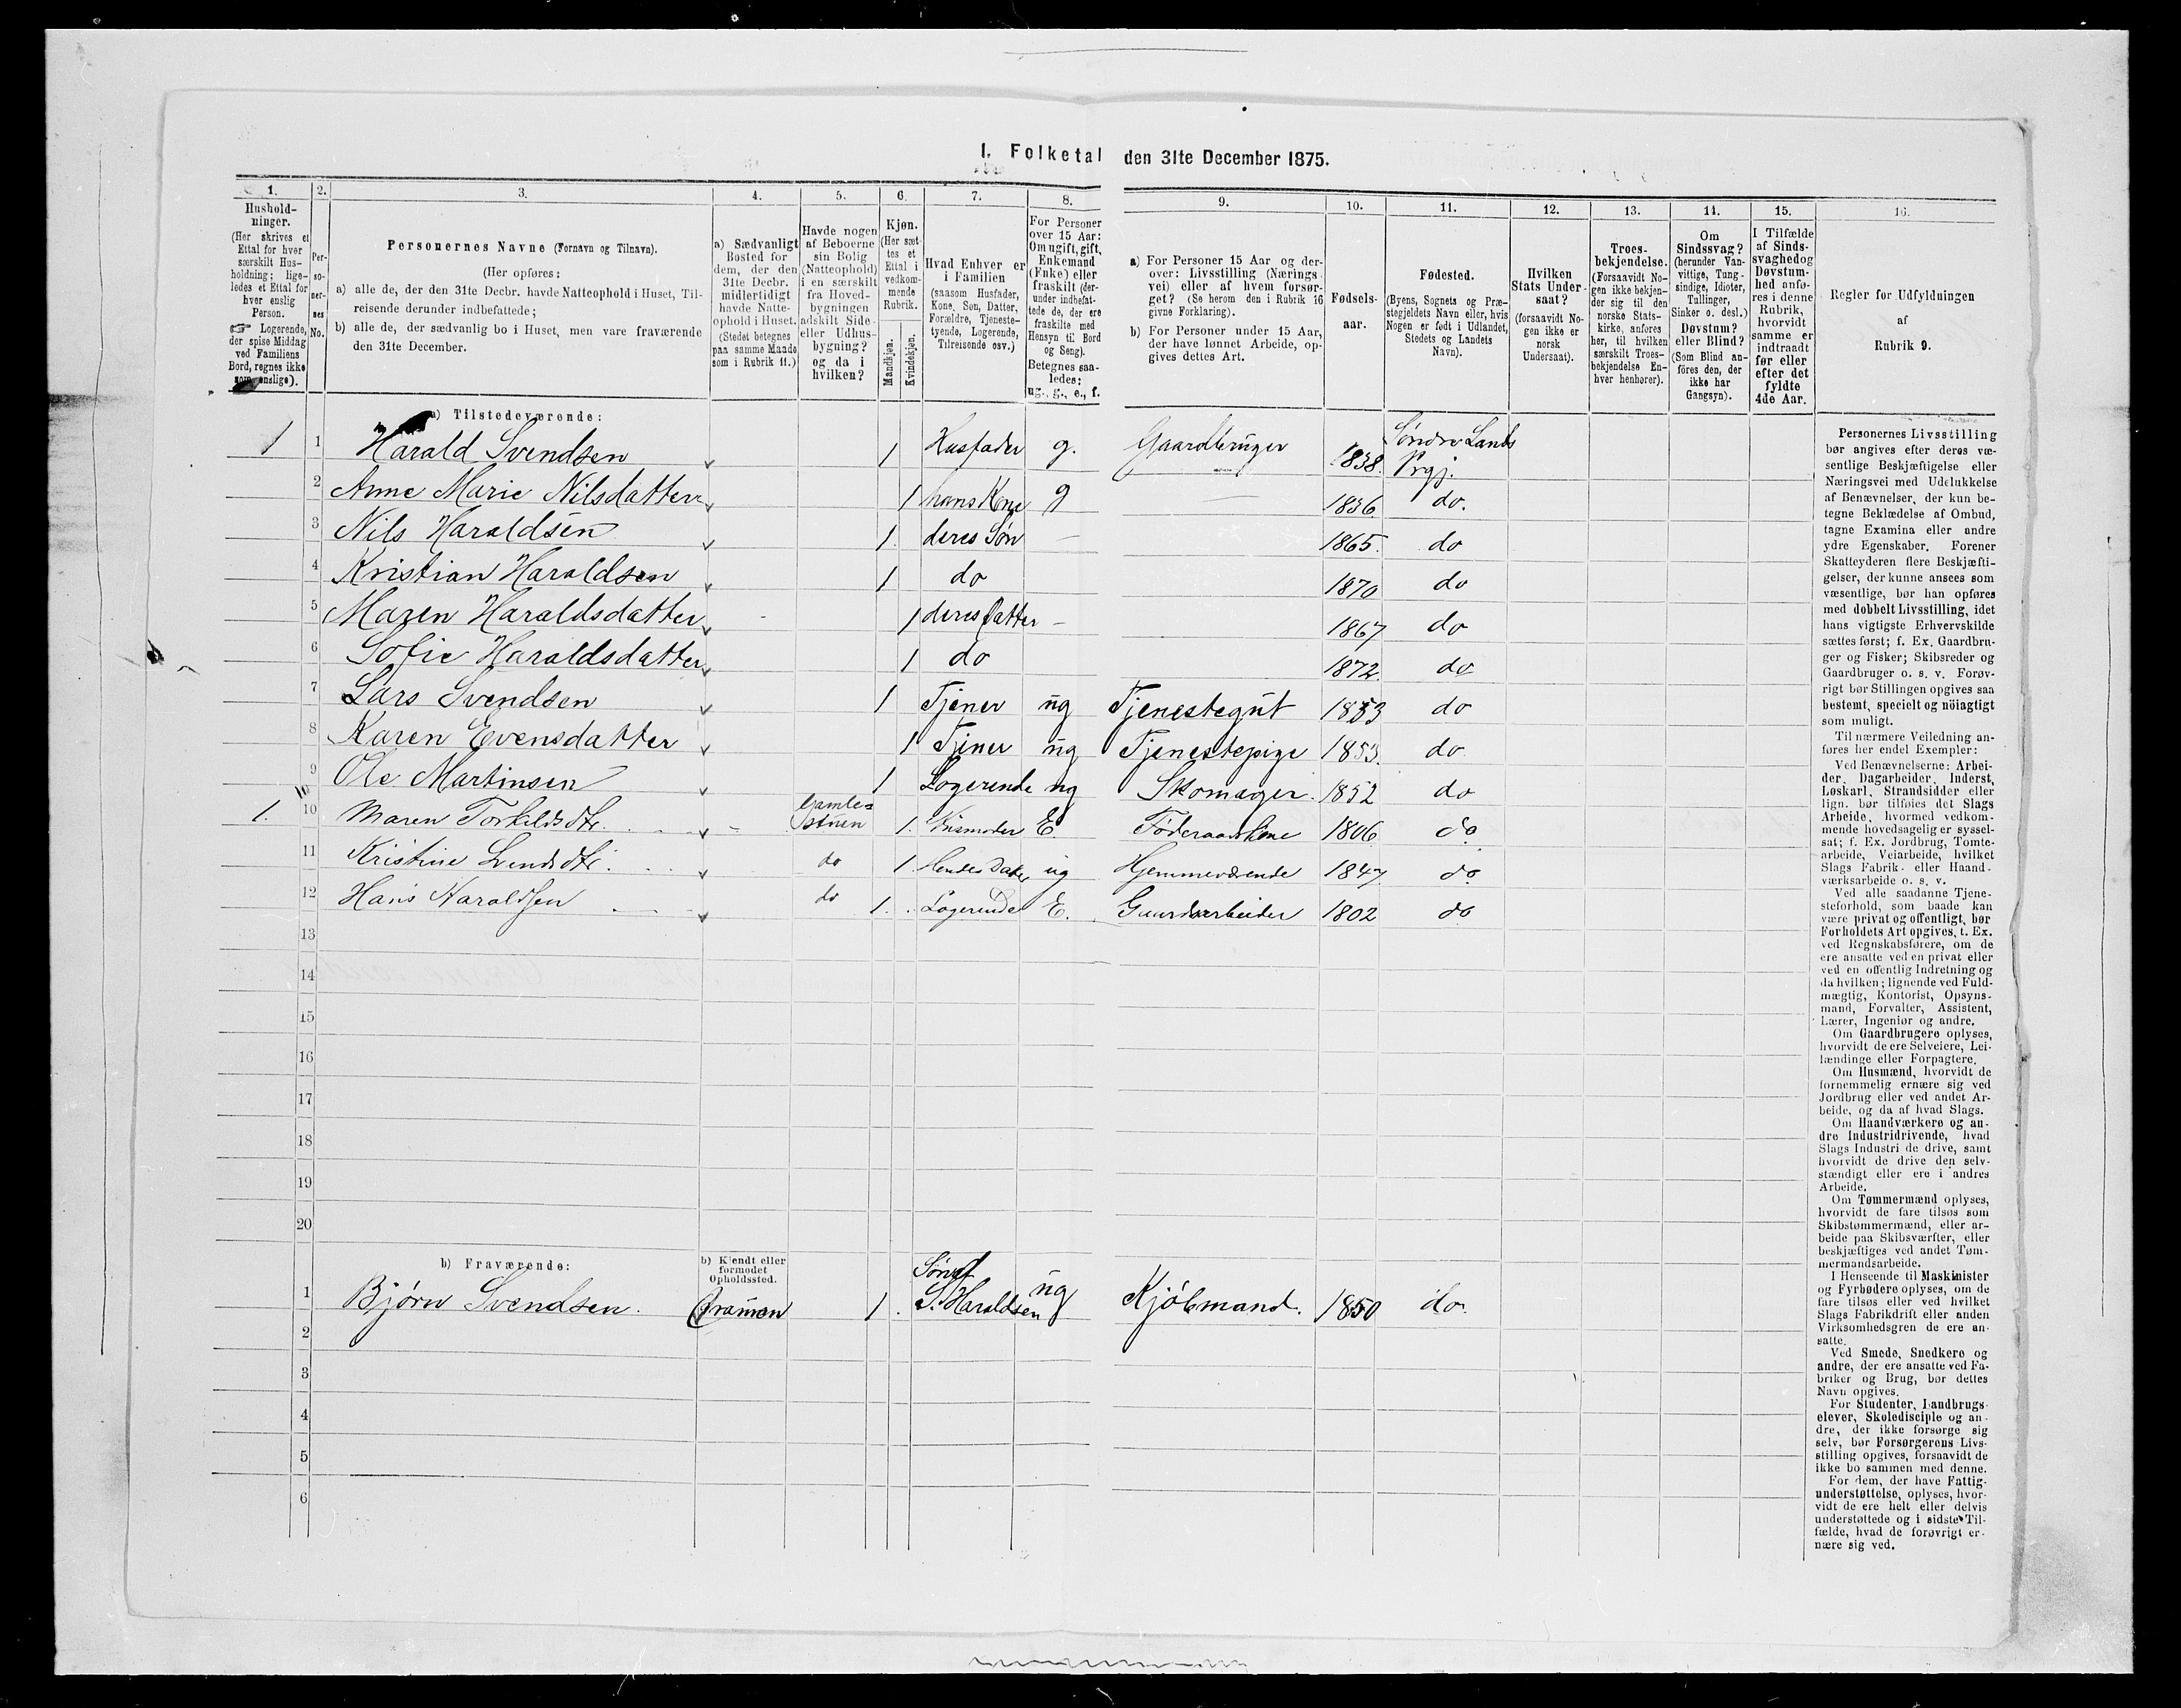 I. Folketal den 31te December 1875.
1. 2. 3. 4. 5. 6. 7. 8. 9. 10. 11. 12. 13. 14. 15. 16.
Hushold-
ninger.
(Her skrives et
Ettal for hver
særskilt Hus-
holdning; lige-
ledes et Ettal for
hver enslig
Person.
☞ Logerende,
der spise Middag
ved Familiens
Bord, regnes ikke
som enslige).
Per-
so-
ner-
nes
No.
Personernes Navne (Fornavn og Tilnavn).
(Her opføres:
a) alle de, der den 31te Decbr. havde Natteophold i Huset, Til-
reisende derunder indbefattede;
b) alle de, der sædvanlig bo i Huset, men vare fraværende
den 31te December.
a) Sædvanligt
Bosted for
dem, der den
31te Decbr.
midlertidigt
havde Natte-
ophold i Huset.
(Stedet betegnes
paa samme Maade
som i Rubrik 11.)
Havde nogen
af Beboerne
sin Bolig
(Natteophold)
i en særskilt
fra Hoved-
bygningen
adskilt Side-
eller Udhus-
bygning?
og da i
hvilken?
Kjøn.
(Her sæt-
tes et
Ettal i
vedkom-
mende
Rubrik.
Mandkjøn.
Kvindekjøn.
Hvad Enhver er
i Familien
(saasom Husfader,
Kone, Søn, Datter,
Forældre, Tjeneste-
tyende, Logerende,
Tilreisende osv.)
For Personer
over 15 Aar:
Om ugift, gift,
Enkemand
(Enke) eller
fraskilt (der-
under indbefat-
tede de, der ere
fraskilte med
Hensyn til Bord
og Seng).
Betegnes saa-
ledes:
ug., g., e., f.
a) For Personer 15 Aar og der-
over: Livsstilling (Nærings-
vei) eller af hvem forsør-
get? (Se herom den i Rubrik 16
givne Forklaring).
b) For Personer under 15 Aar,
der have lønnet Arbeide, op-
gives dettes Art.
Fødsels-
aar.
Fødested.
(Byens, Sognets og Præ-
stegjeldets Navn eller, hvis
Nogen er født i Udlandet,
Stedets og Landets
Navn).
Hvilken
Stats Under-
saat?
(forsaavidt No-
gen ikke er
norsk
Undersaat).
Troes-
bekjendelse.
(Forsaavidt No-
gen ikke bekjen-
der sig til den
norske Stats-
kirke, anføres
her, til hvilken
særskilt Troes-
bekjendelse En-
hver henhører).
Om
Sindssvag?
(herunder Van-
vittige, Tung-
sindige, Idioter,
Tullinger,
Sinker o. desl.)
Døvstum?
eller Blind?
(Som Blind an-
føres den, der
ikke har
Gangsyn).
I Tilfælde
af Sinds-
svaghed og
Døvstum-
hed anfø-
res i denne
Rubrik,
hvorvidt
samme er
indtraadt
før eller
efter det
fyldte
4de Aar.
Regler for Udfyldningen
af
Rubrik 9.
a) Tilstedeværende:
1 1 Harald Svendsen 1 Husfader g. Gaardbruger 1838. Søndre Lands Prgj.
2 Anne Marie Nilsdatter 1 hans Kone g 1836. do.
3 Nils Haraldsen 1 deres Søn 1865. do
4 Kristian Haraldsen 1 do 1870 do
5 Maren Haraldsdatter 1 deres datter 1867 do
6 Sofie Haraldsdatter 1 do 1872. do
7 Lars Svendsen 1 Tjener ug Tjenestegut 1853 do
8 Karen Evensdatter 1 Tjener ug Tjenestepige 1853. do
9 Ole Martinsen 1 Logerende ug Skomager. 1852 do
1. 10 Maren Torkildsdtr. Gamle= stuen 1. Husmoder E. Føderaadskone 1806. do.
11 Kristine Svendsdtr. do 1. Hendes Datter ug Hjemmeværende 1847. do.
12 Hans Haraldsen do 1. Logerende E. Gaardarbeider 1802 do
13
14
15
16
17
18
19
20
b) Fraværende:
b) Kjendt eller
formodet
Opholdssted.
1 Bjørn Svendsen. 1. Søn af S. Haraldsen ug Kjøbmand. 1850 do.
2
3
4
5
6
Personernes Livsstilling
bør angives efter deres væ-
sentlige Beskjæftigelse eller
Næringsvei med Udelukkelse
af Benævnelser, der kun be-
tegne Beklædelse af Ombud,
tagne Examina eller andre
ydre Egenskaber. Forener
Skatteyderen flere Beskjæfti-
gelser, der kunne ansees som
væsentlige, bør han opføres
med dobbelt Livsstilling, idet
hans vigtigste Erhvervskilde
sættes først; f. Ex. Gaardbru-
ger og Fisker; Skibsreder og
Gaardbruger o. s. v. Forøv-
rigt bør Stillingen opgives saa
bestemt, specielt og nöiagtigt
som muligt.
Til nærmere Veiledning an-
føres her endel Exempler:
Ved Benævnelserne: Arbei-
der, Dagarbeider, Inderst,
Løskarl, Strandsidder eller
lign. bør tilføies det Slags
Arbeide, hvormed vedkom-
mende hovedsagelig er syssel-
sat; f. Ex. Jordbrug, Tomte-
arbeide, Veiarbeide, hvilket
Slags Fabrik- eller Haand-
værksarbeide o. s. v.
Ved alle saadanne Tjene-
steforhold, som baade kan
være privat og offentligt, bør
Forholdets Art opgives, t. Ex.
ved Regnskabsførere, om de
ere ansatte ved en privat eller
ved en offentlig Indretning og
da hvilken; lignende ved Fuld-
mægtig, Kontorist, Opsyns-
mand, Forvalter, Assistent,
Lærer, Ingeniør og andre.
Om Gaardbrugere oplyses,
hvorvidt de ere Selveiere, Lei-
lændinge eller Forpagtere.
Om Husmænd, hvorvidt de
fornemmelig ernære sig ved
Jordbrug eller ved andet Ar-
beide, og da af hvad Slags.
Om Haandværkere og an-
dre Industridrivende, hvad
Slags Industri de drive, samt
hvorvidt de drive den selv-
stændigt eller ere i andres
Arbeide.
Om Tømmermænd oplyses,
hvorvidt de fare tilsøs som
Skibstømmermænd, eller ar-
beide paa Skibsværfter, eller
beskjæftiges ved andet Tøm-
mermandsarbeide.
I Henseende til Maskinister
og Fyrbødere oplyses, om de
fare tilsøs eller ved hvilket
Slags Fabrikdrift eller anden
Virksomhedsgren de ere an-
satte.
Ved Smede, Snedkere og
andre, der ere ansatte ved Fa-
briker og Brug, bør dettes
Navn opgives.
For Studenter, Landbrugs-
elever, Skoledisciple og an-
dre, der ikke forsørge sig
selv, bør Forsørgerens Livs-
stilling opgives, forsaavidt de
ikke bo sammen med denne.
For dem, der have Fattig-
understøttelse, oplyses, hvor-
vidt de ere helt eller delvis
understøttede og i sidste Til-
fælde, hvad de forøvrigt er-
nære sig ved.